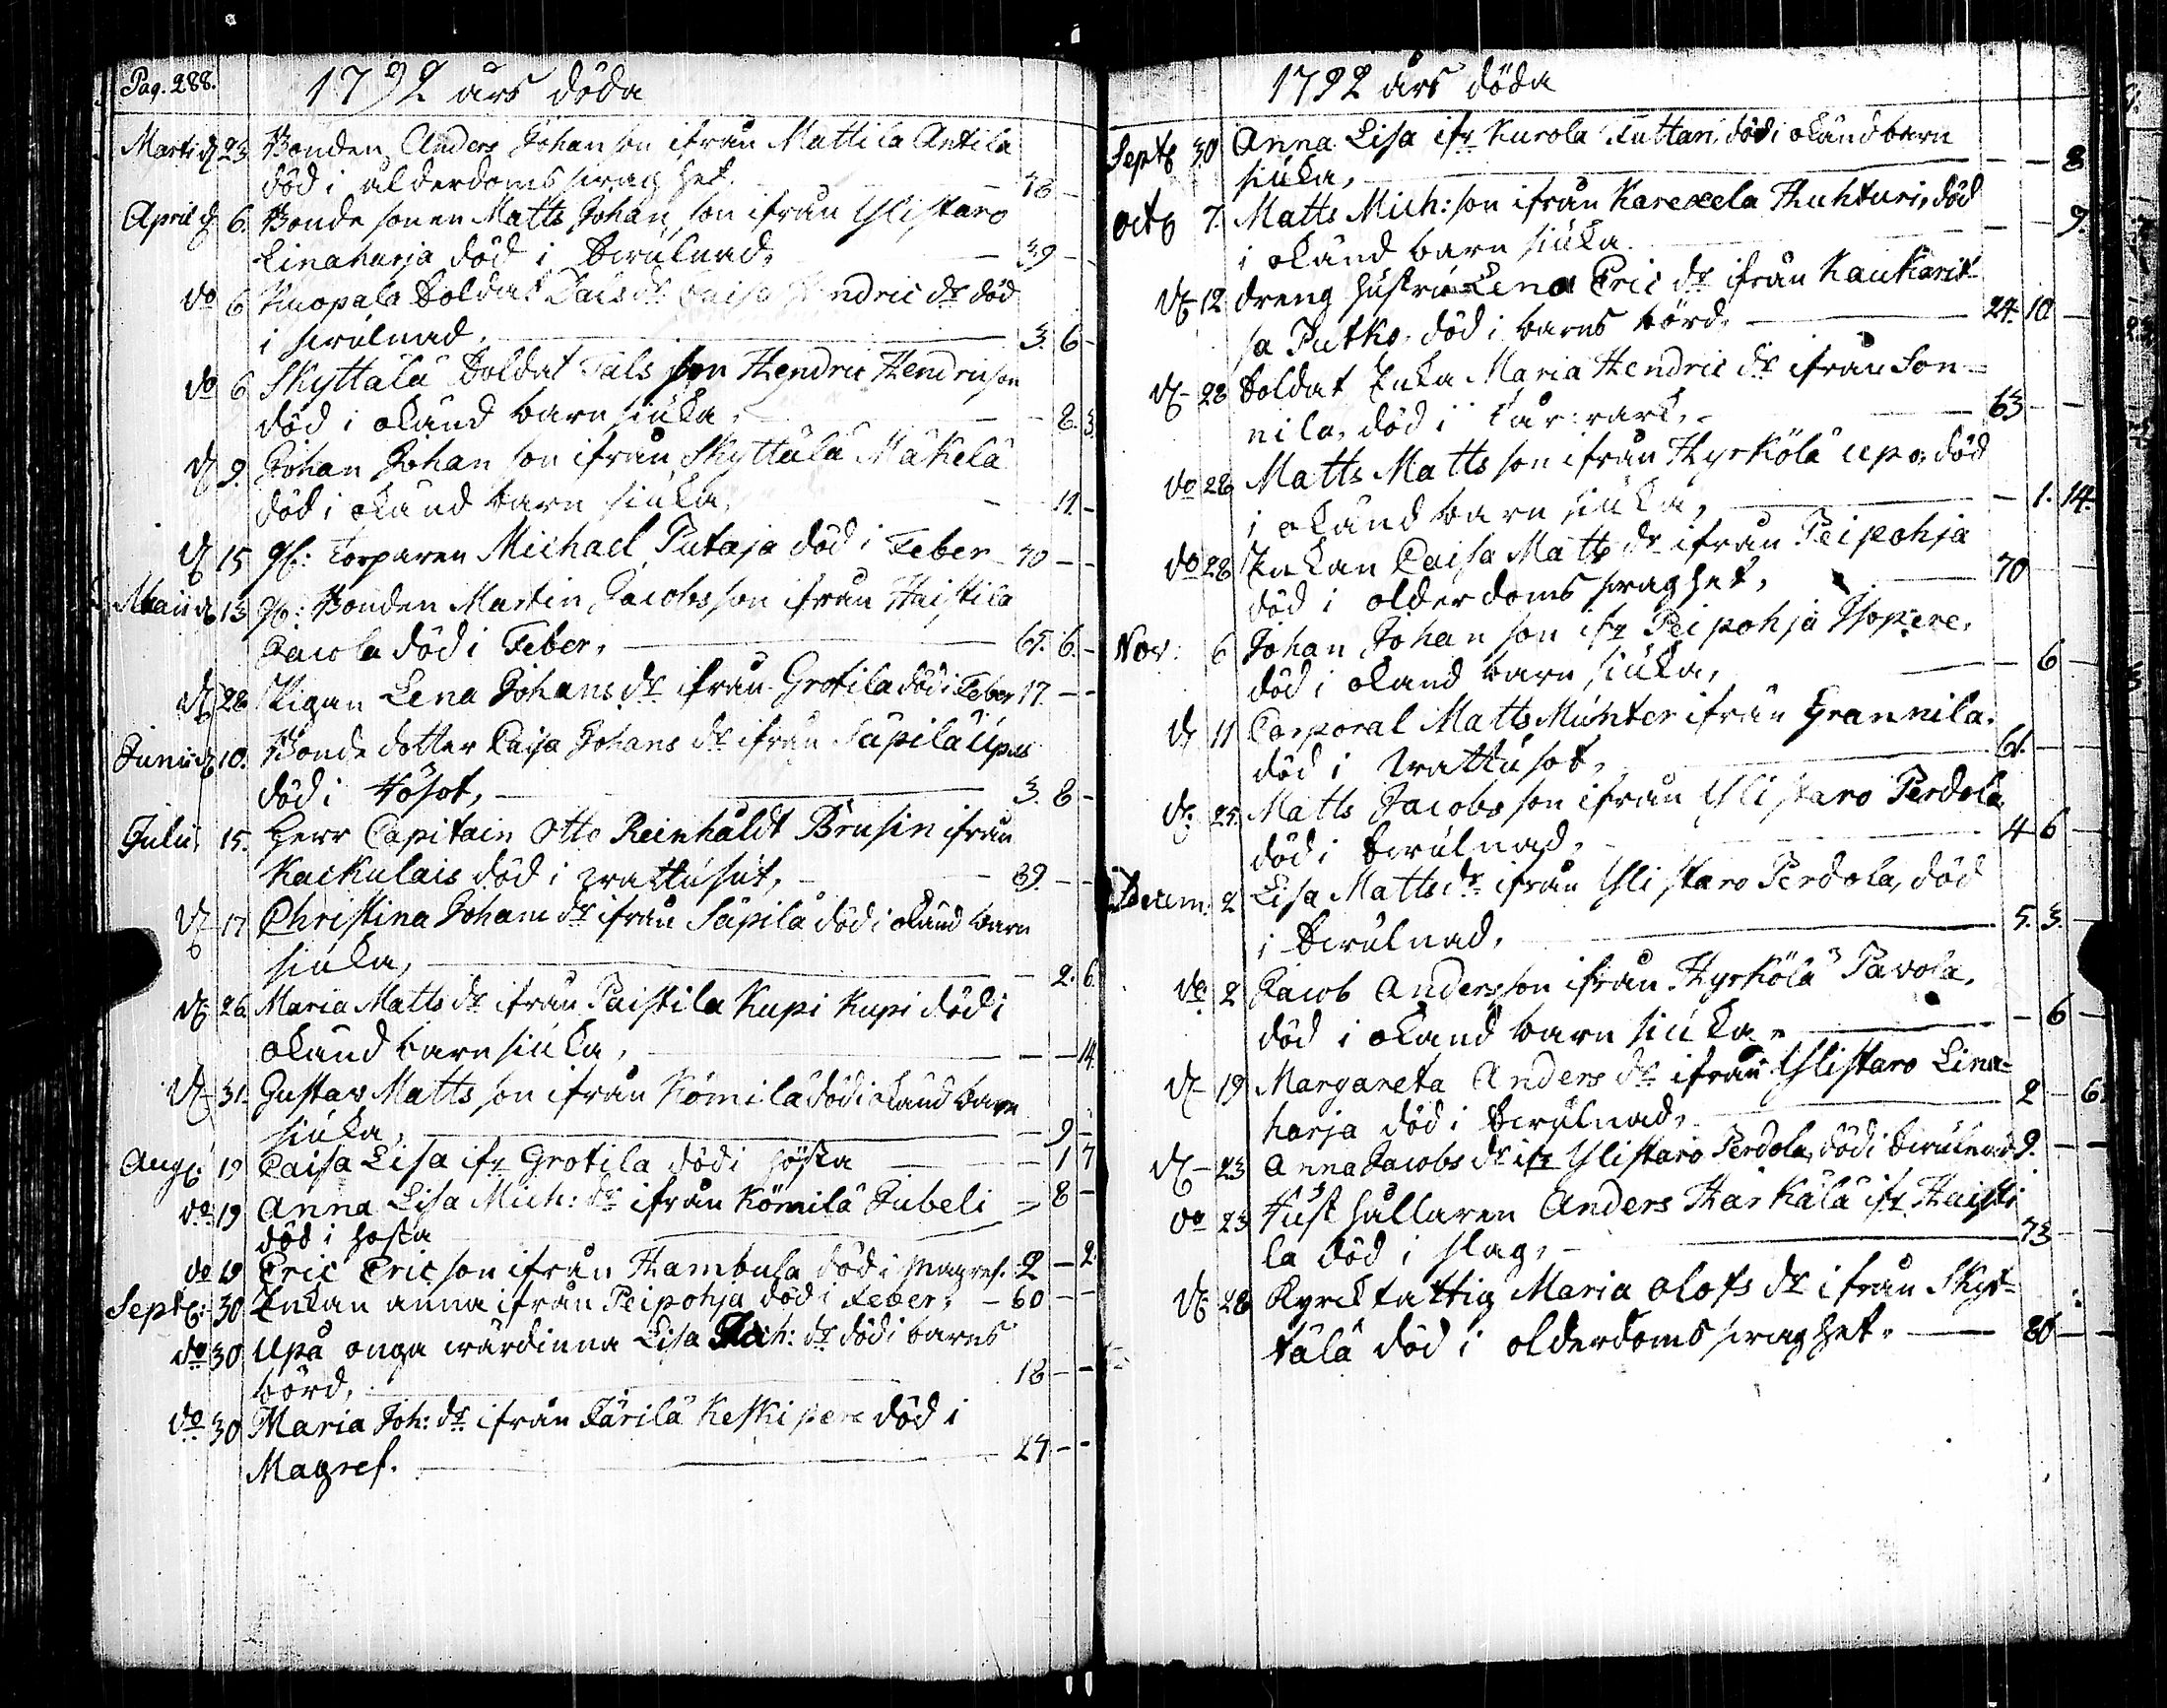 Pag. 288.
1792 års döda
Marti d. 23 Bonden Anders Johanson ifrån Mattila Antila
död i ålderdoms sraghet. - 76 -
April d. 6. Bonde sonen Matts Johanson ifrån Ylistaro
Linaharja död i drulnad, - 39 - -
do 6 Knopala Soldat Dais dr Caisa Hendric dr död
i drulnad, 3. 6 -
do 6 Skyttälä Soldat Fäls son Hendric Hendricson
död i okänd barn siuka, - 8. 3
d. 9. Johan Johanson ifrån Skyttälä Mäkelä
död i okänd barn siuka, - 11 -
d. 15 gl: Torparen Michael Putaja död i Feber 70 - -
Maii d. 13 gl: Bonden Martin Jacobsson ifrån Haistila
Jacola död i Feber, 65. 6. -
d. 28 Pigan Lena Johans dr ifrån Grotila död i Feber 17. - -
Junii d. 10. Bonde dotter Caisa Johans dr ifrån Säpilä Upo
död i hösot, - 3. 8 -
Julii 15. Herr Capitain Otto Reinhåldt Brusin ifrån
Kaukulais död i wattusut, - 39. - -
d. 17 Christina Johans dr ifrån Säpilä död i okänd barn
siuka, - 2. 6
d. 26 Maria Matts dr ifrån Paistila Kupi Kupi död i
okänd barn siuka, - - 14.
d. 31. Gustav Matts son ifrån Kömilä död i okänd barn
siuka, - 9 -
Aug: 19 Caisa Lisa ifr Grotila död i hösta - 1 7
do 19 Anna Lisa Mich: dr ifrån Kömilä Jubeli - 8 -
död i hosta
do 19 Eric Ericson ifrån Hambula död i Magref. 2 - 2.
Sept: 30 Enkan anna ifrån Peipohja död i Feber, - 60 - -
do 30 Upå onga wärdinna Lisa Mich: dr död i barns
börd, 18 - -
do 30 Maria Joh: dr ifrån Järilä Keskipere död i
Magref. 24 - -
1792 års döda
Septb 30 Anna Lisa ifr Kurola Tuttari, död i okänd barn
siuka, - - 8
Octb 7. Matts Mich: son ifrån Karexela Huhturi, död
i okänd barn siuka. - - 9.
d. 12 dreng hustru Lena Eric dr ifrån Kaukarit-
sa Putko, död i barns börd, 24. 10 -
d. 28 Soldat Enka Maria Hendric dr ifrån Son-
nila, död i wärk, - 63 - -
do 28 Matts Matts son ifrån Hyrkölä Upo, död
i okänd barn siuka, - 1. 14.
do 28 Enkan Caisa Matts dr ifrån Peipohja
död i olderdoms sraghet, 70 - -
Nov: 6 Johan Johanson ifr Peipohja Isopere,
död i okand barn siuka, - 6 -
d. 11 Corporal Matts Münter ifrån Grannila.
död i wattusot, 61. - -
d. 25. Matts Jacobs son ifrån Ylistaro Perdola
död i drulnad, 4 6 -
Decem: 2 Lisa Matts dr ifrån Ylistaro Perdola, död
i drulnad, 5. 3. -
do 2 Jacob Andersson ifrån Hyrkölä Pavola,
död i okand barn siuka, - 6 -
d. 19 Margareta Anders dr ifrån Ylistaro Lina-
harja död i drulnad, 2 - 6.
d. 23 Anna Jacobs dr ifr Ylistaro Perdola, död i drulnad 9. - -
do 23 Hushållaren Anders Harkälä ifr Haisti
la död i slag, - 73 - -
d. 28 Kyrck fattig Maria Olofs dr ifrån Skyt-
tälä död i olderdoms sraghet. - 86 - -